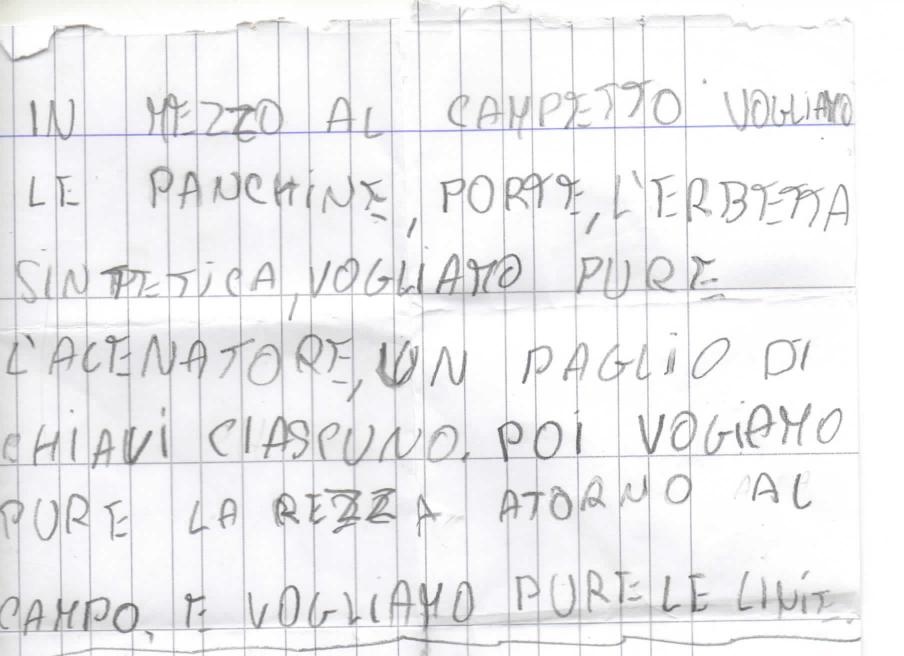 IN MEZZO AL CAMPETTO VOGLIAMO
LE PANCHINE, PORTE, L'ERBETTA
SINTETICA, VOGLIAMO PURE
L'ALENATORE, UN PAGLIO DI
CHIAVI CIASCUNO. POI VOGIAMO
PURE LA REZZA ATORNO AL
CAMPO. E VOGLIAMO PURE LE LINIE